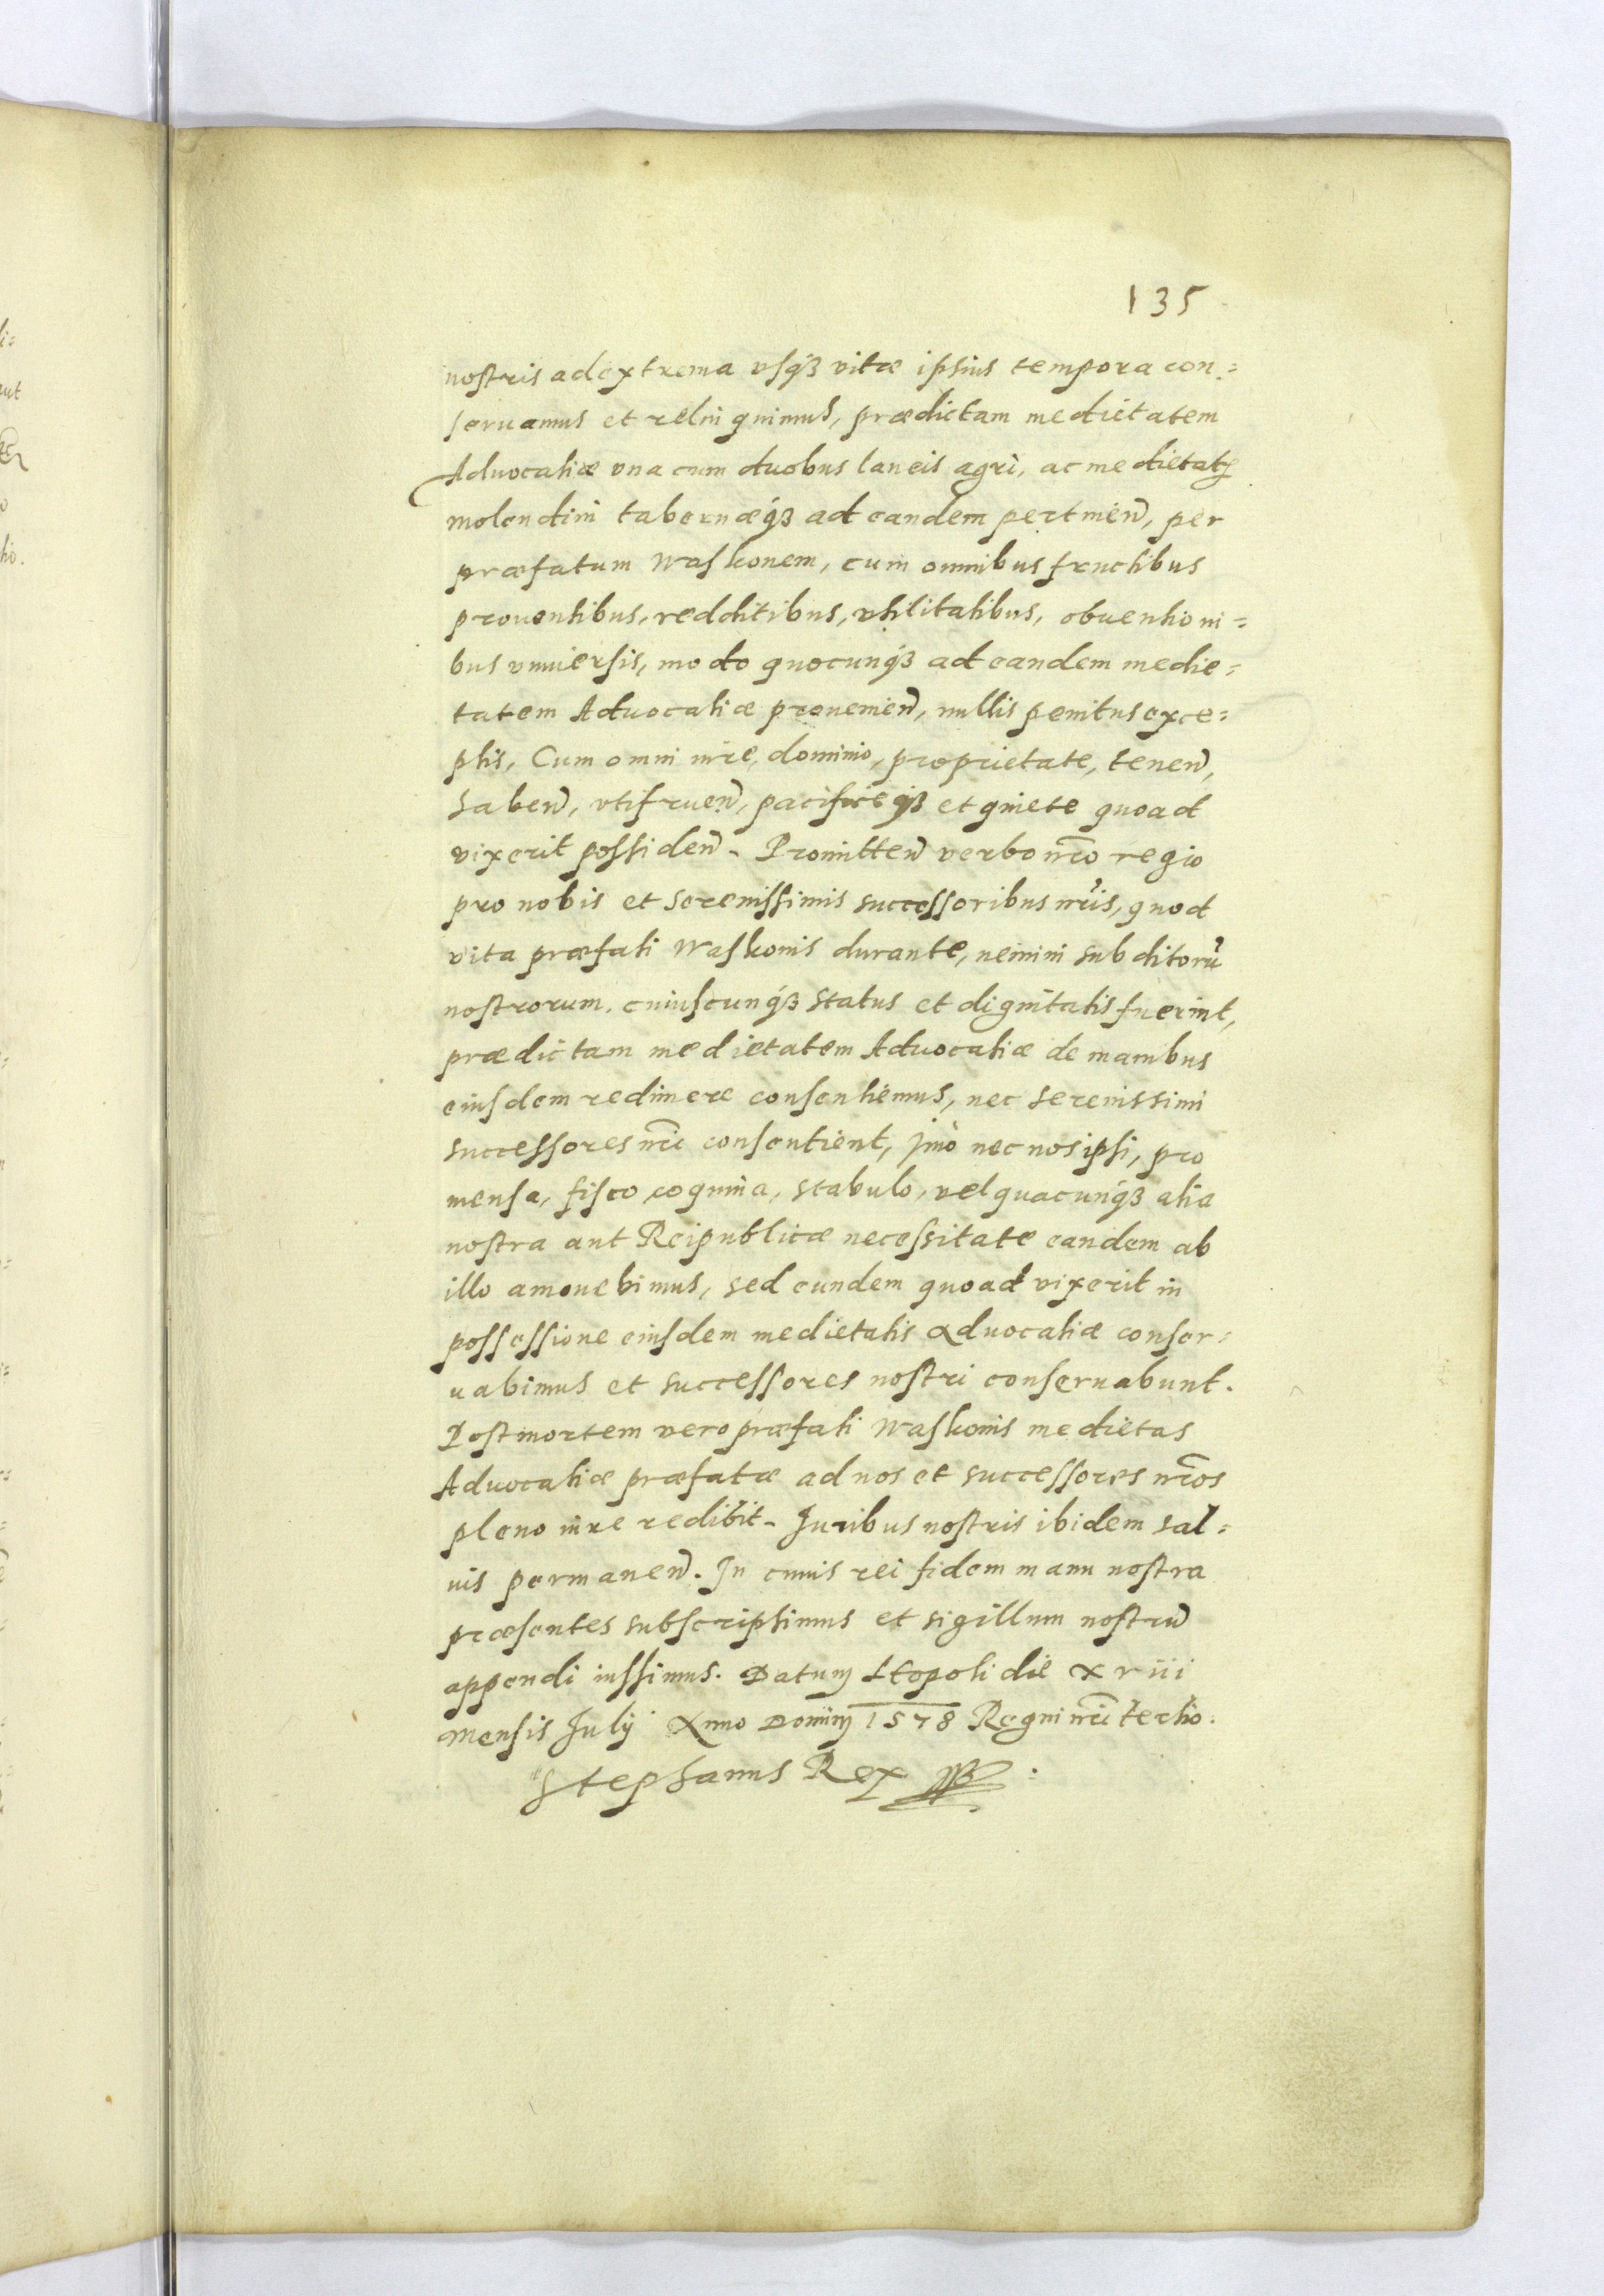 135
nostris ad extrema vsq́ȝ vitæ ipsius tempora con=
seruamus et relinquimus, prædictam medietatem
Aduocatiæ vna cum duobus laneis agri, ac medietatę
molendini tabernæq́ȝ ad eandem pertineñ, per
præfatum Waskonem, cum omnibus fructibus
prouentibus, redditibus, vtilitatibus, obuentioni=
bus vniuersis, modo quocunq́ȝ ad eandem medie=
tatem Aduocatiæ prouenieñ, nullis penitus exce=
ptis, Cum omni iure, dominio, proprietate, teneñ,
habeñ, vtifrueñ, pacificeq́ȝ et quiete quoad
vixerit possideñ. Promitteñ verbo nr̃o regio
pro nobis et serenissimis successoribus nr̃is, quod
vita præfati Waskonis durante, nemini subditorũ
nostrorum, cuiuscunq́ȝ status et dignitatis fuerint,
prædictam medietatem Aduocatiæ de manibus
eiusdem redimere consentiemus, nec serenissimi
successores nr̃i consentient, jmò nec nos ipsi, pro
mensa, fisco coquina, stabulo, vel quacunq́ȝ alia
nostra aut Reipublicæ necessitate eandem ab
illo amouebimus, sed eundem quoad vixerit in
possessione eiusdem medietatis Aduocatiæ conser=
uabimus et successores nostri conseruabunt.
Post mortem vero præfati Waskonis medietas
Aduocatiæ præfatæ ad nos et successores nr̃os
pleno iure redibit. Juribus nostris ibidem sal=
uis permaneñ. In cuius rei fidem manu nostra
præsentes subscripsimus et sigillum nostrũ
appendi iussimus. Datum Leopoli die xviii
mensis Julij Anno Domini 1578 Regni nr̃i tertio.
Stephanus Rex